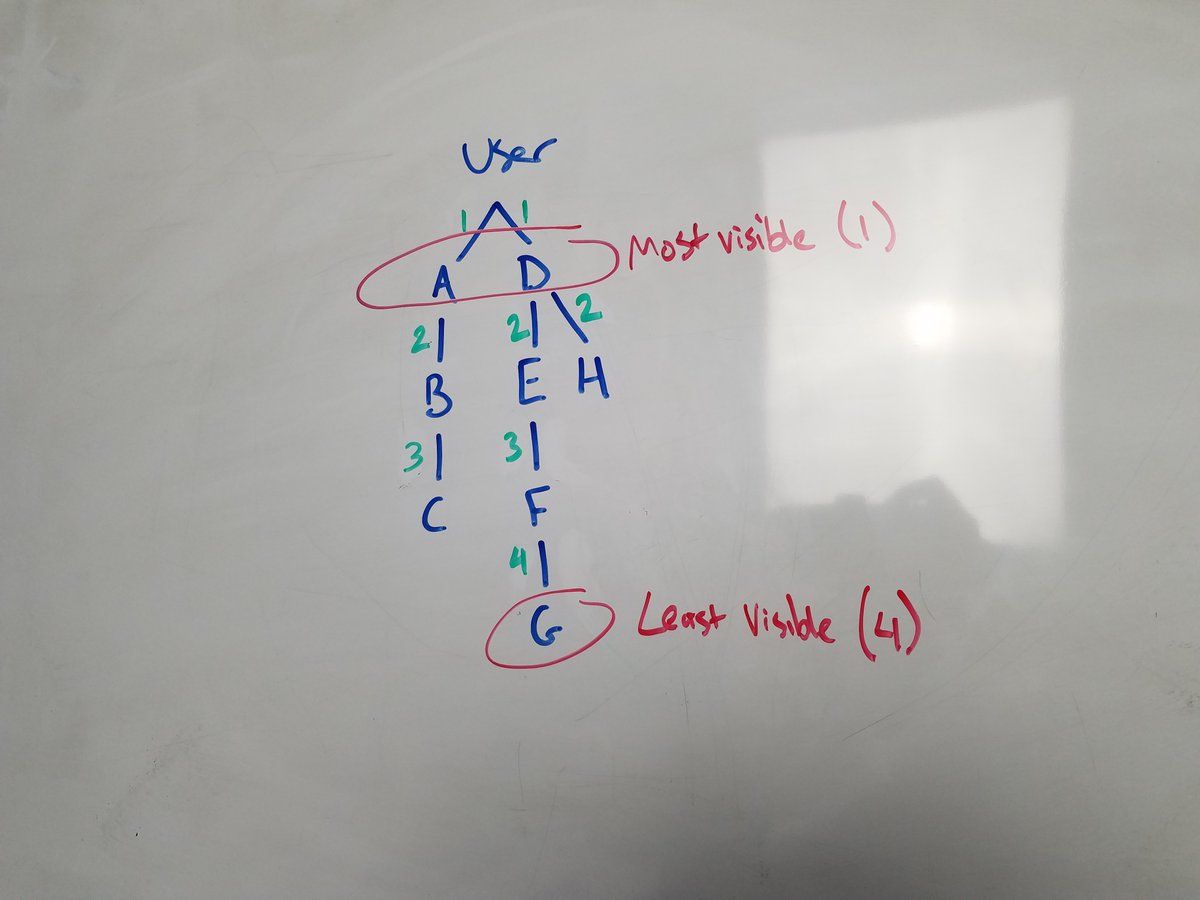 User
1 1
A D Most visible (1)
2 2 2
B E H
3 3
C F
4
G Least Visible (4)